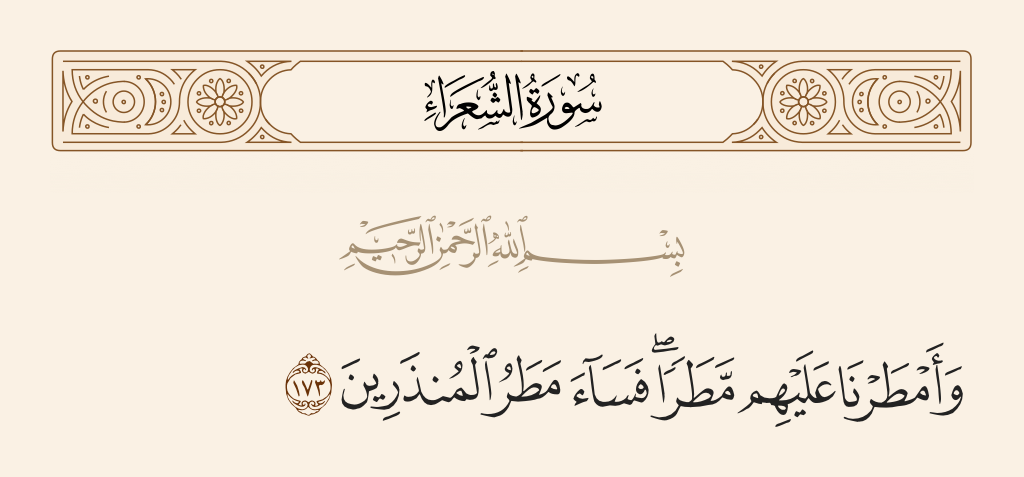 سُورَةُ الشُّعَرَاءِ
بِسْمِ ٱللَّهِ ٱلرَّحْمَٰنِ ٱلرَّحِيمِ
وَأَمْطَرْنَا عَلَيْهِم مَّطَرًاۖ فَسَآءَ مَطَرُ ٱلْمُنذَرِينَ ١٧٣